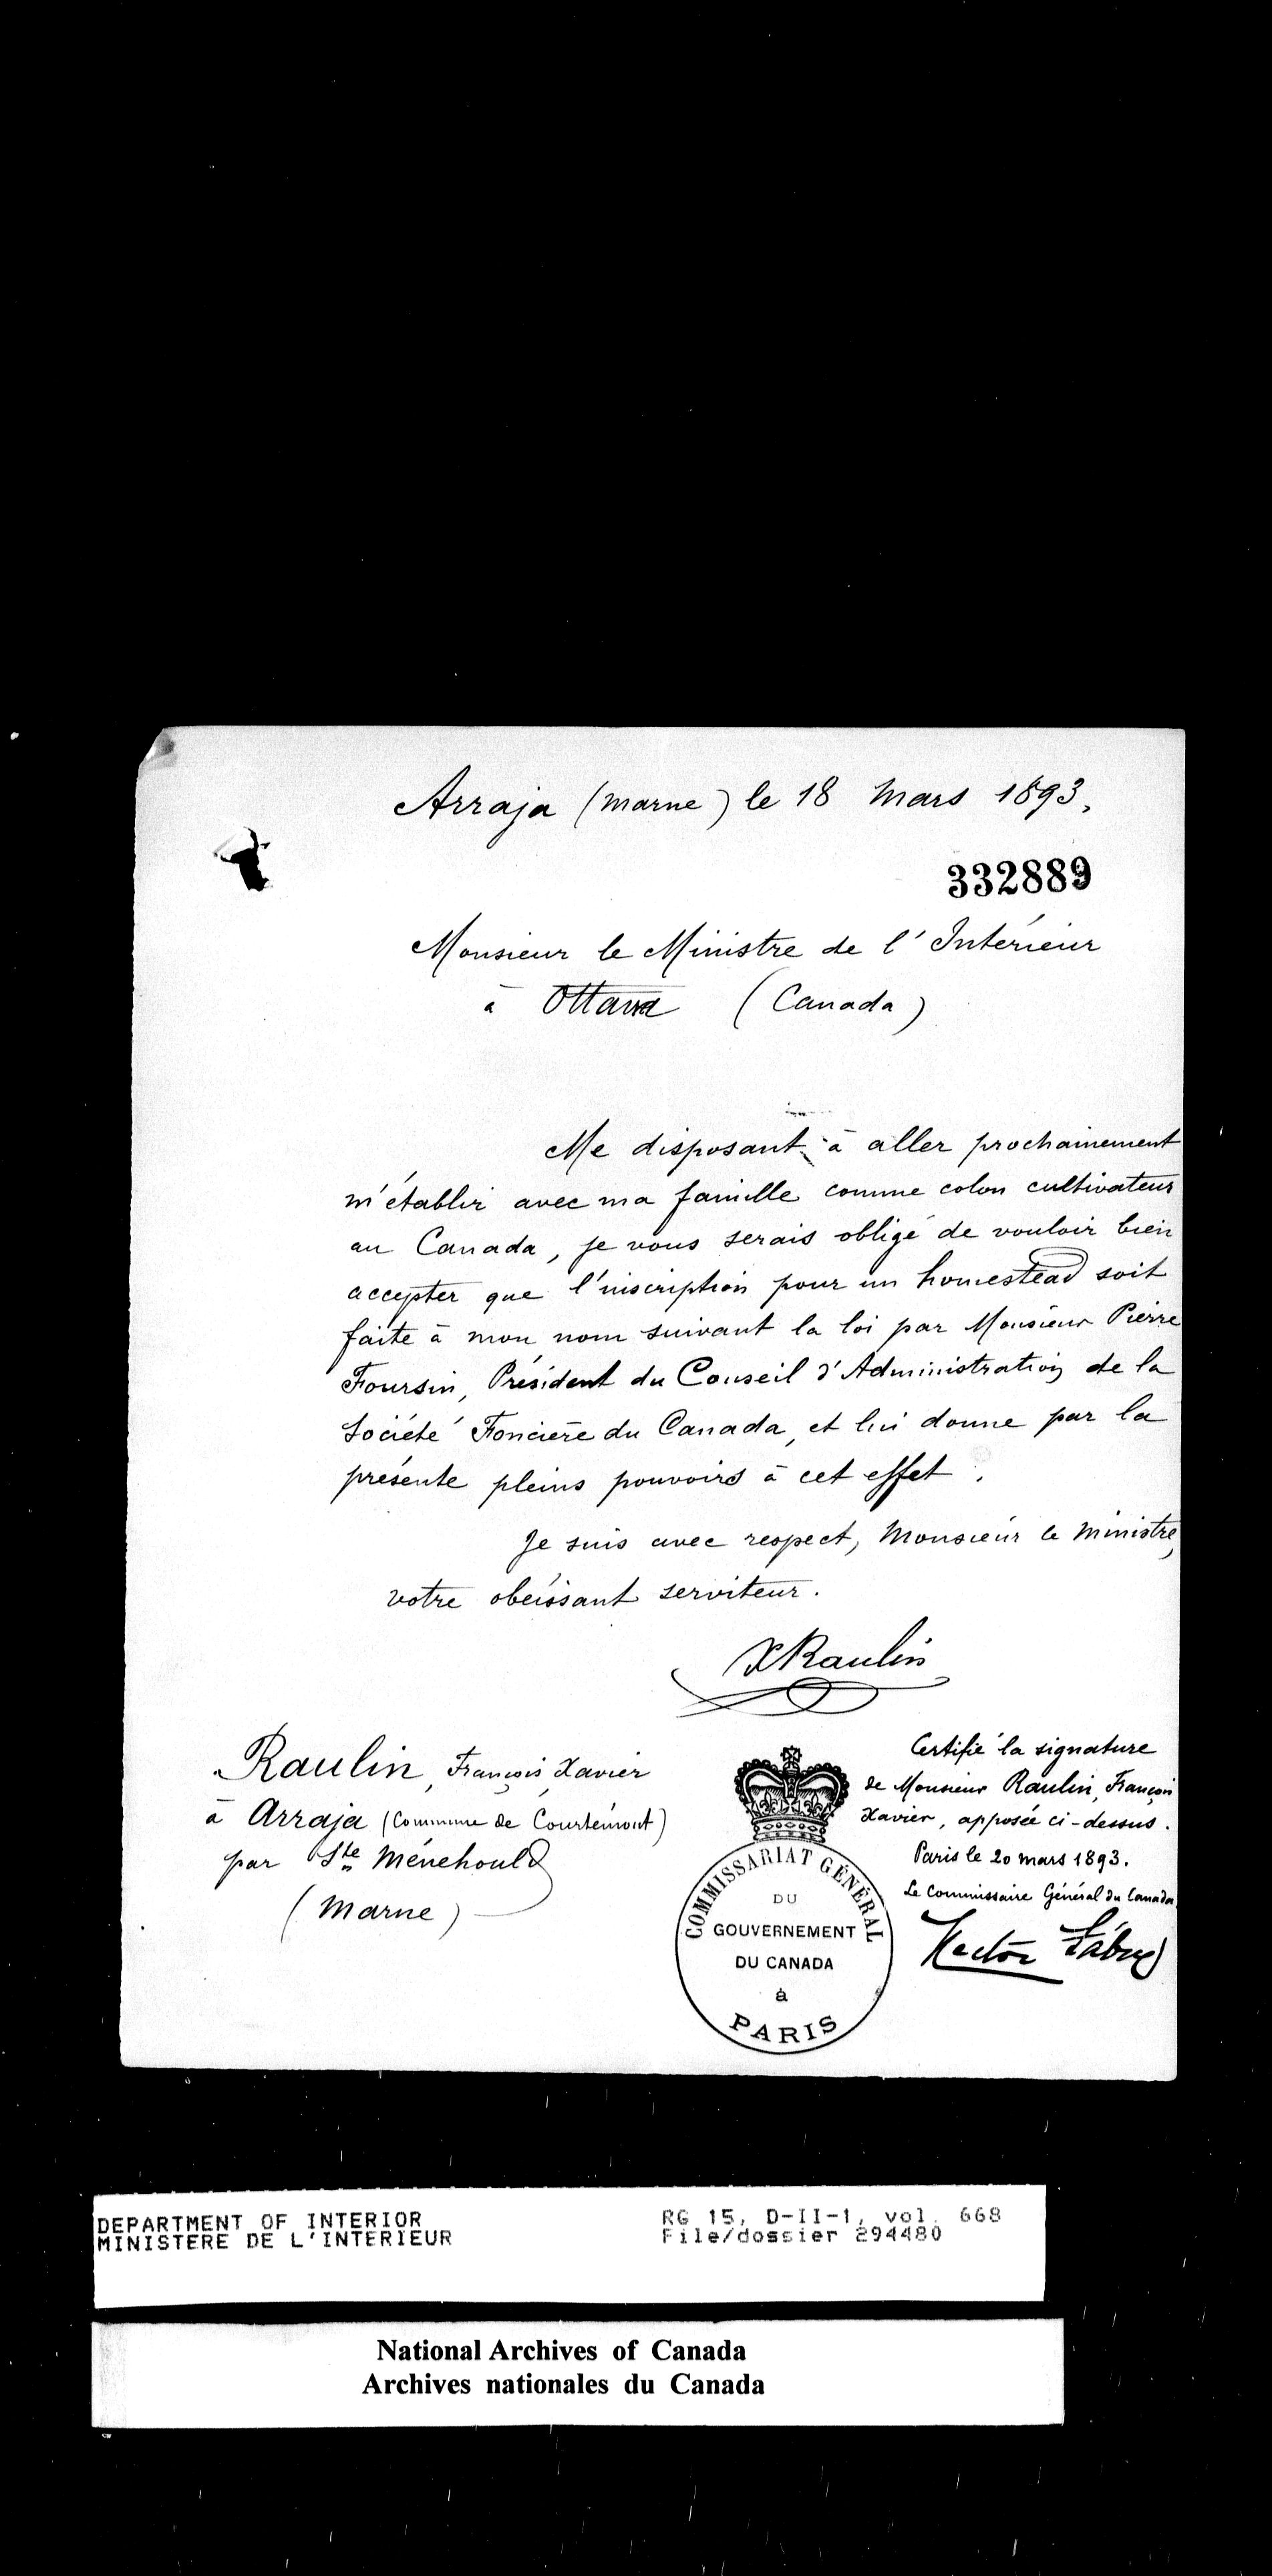 Arraja (Marne) le 18 Mars 1893.
332889
Monsieur le Ministre de l'Intérieur
à Ottawa (Canada)
Me disposant à aller prochainement
m'établir avec ma famille comme colon cultivateur
au Canada, je vous serais obligé de vouloir bien
accepter que l'inscription pour un homestead soit
faite à mon nom suivant la loi par Monsieur Pierre
Foursin, Président du Conseil d'Administration de la
Société Foncière du Canada, et lui donne par la
présente pleins pouvoirs à cet effet.
Je suis avec respect, Monsieur le Ministre,
votre obéissant serviteur.
X Raulin
Raulin, François Xavier
à Arraja (Commune de Courtémont)
par Ste Ménehould
(Marne)
Certifié la signature
de Monsieur Raulin, François
Xavier, apposée ci-dessus.
Paris le 20 mars 1893.
Le Commissaire Général du Canada
Hector Fabre
COMMISSARIAT GÉNÉRAL
DU
GOUVERNEMENT
DU CANADA
à
PARIS
DEPARTMENT OF INTERIOR
MINISTERE DE L'INTERIEUR
RG 15, D-II-1, vol. 668
File/dossier 294480
National Archives of Canada
Archives nationales du Canada